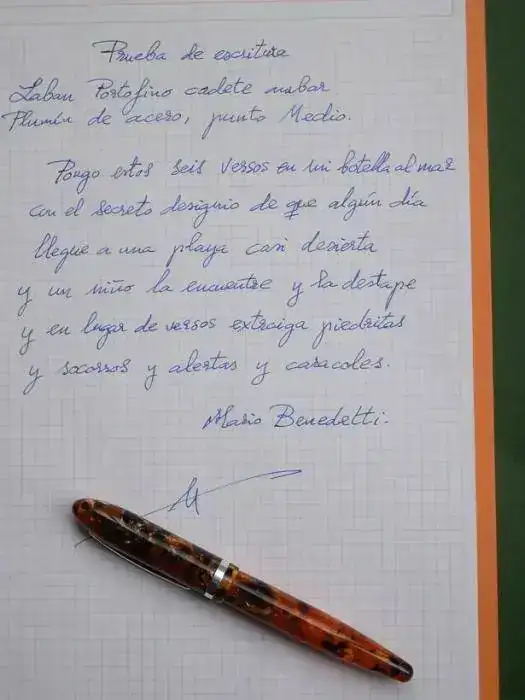 Prueba de escritura
Laban Portofino cadete nabar
Plumín de acero, punto Medio.
Pongo estos seis versos en mi botella al mar
con el secreto designio de que algún día
llegue a una playa casi desierta
y un niño la encuentre y la destape
y en lugar de versos extraiga piedritas
y socorros y alertas y caracoles.
Mario Benedetti.